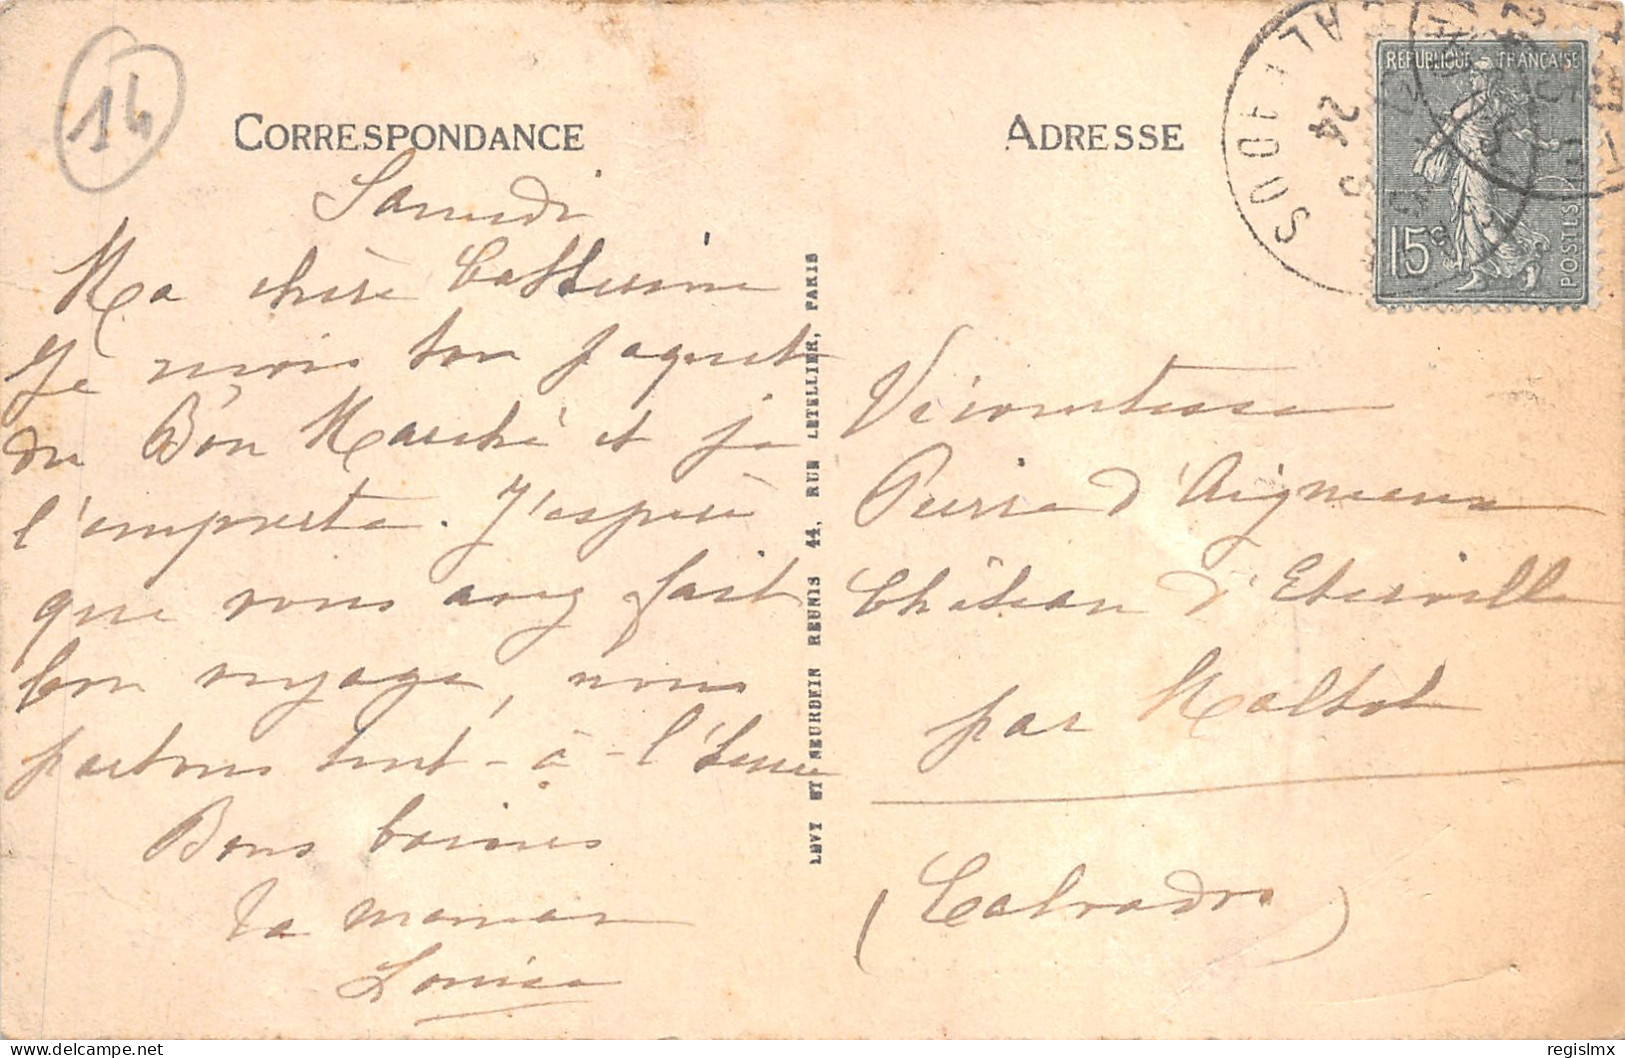 14
CORRESPONDANCE
Samedi
Ma chère Catherine
Je reçois ton paquet
du Bon Marché et je
l'emporte. J'espère
que vous avez fait
bon voyage, nous
partons tout-à-l'heure
Bons baisers
Ta maman
Louise
LEVY ET NEURDEIN REUNIS 44, RUE LETELLIER, PARIS
ADRESSE
24
REPUBLIQUE FRANÇAISE
15c
POSTES
Vicomtesse
Pierre d'Aigneaux
Château d'Eterville
par Maltot
(Calvados)
regislmx